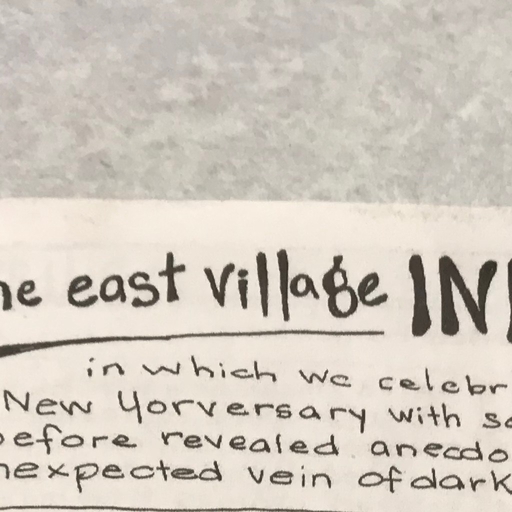 he east village IN
in which we celebr
New Yorversary with so
before revealed anecdo
nexpected vein of dark